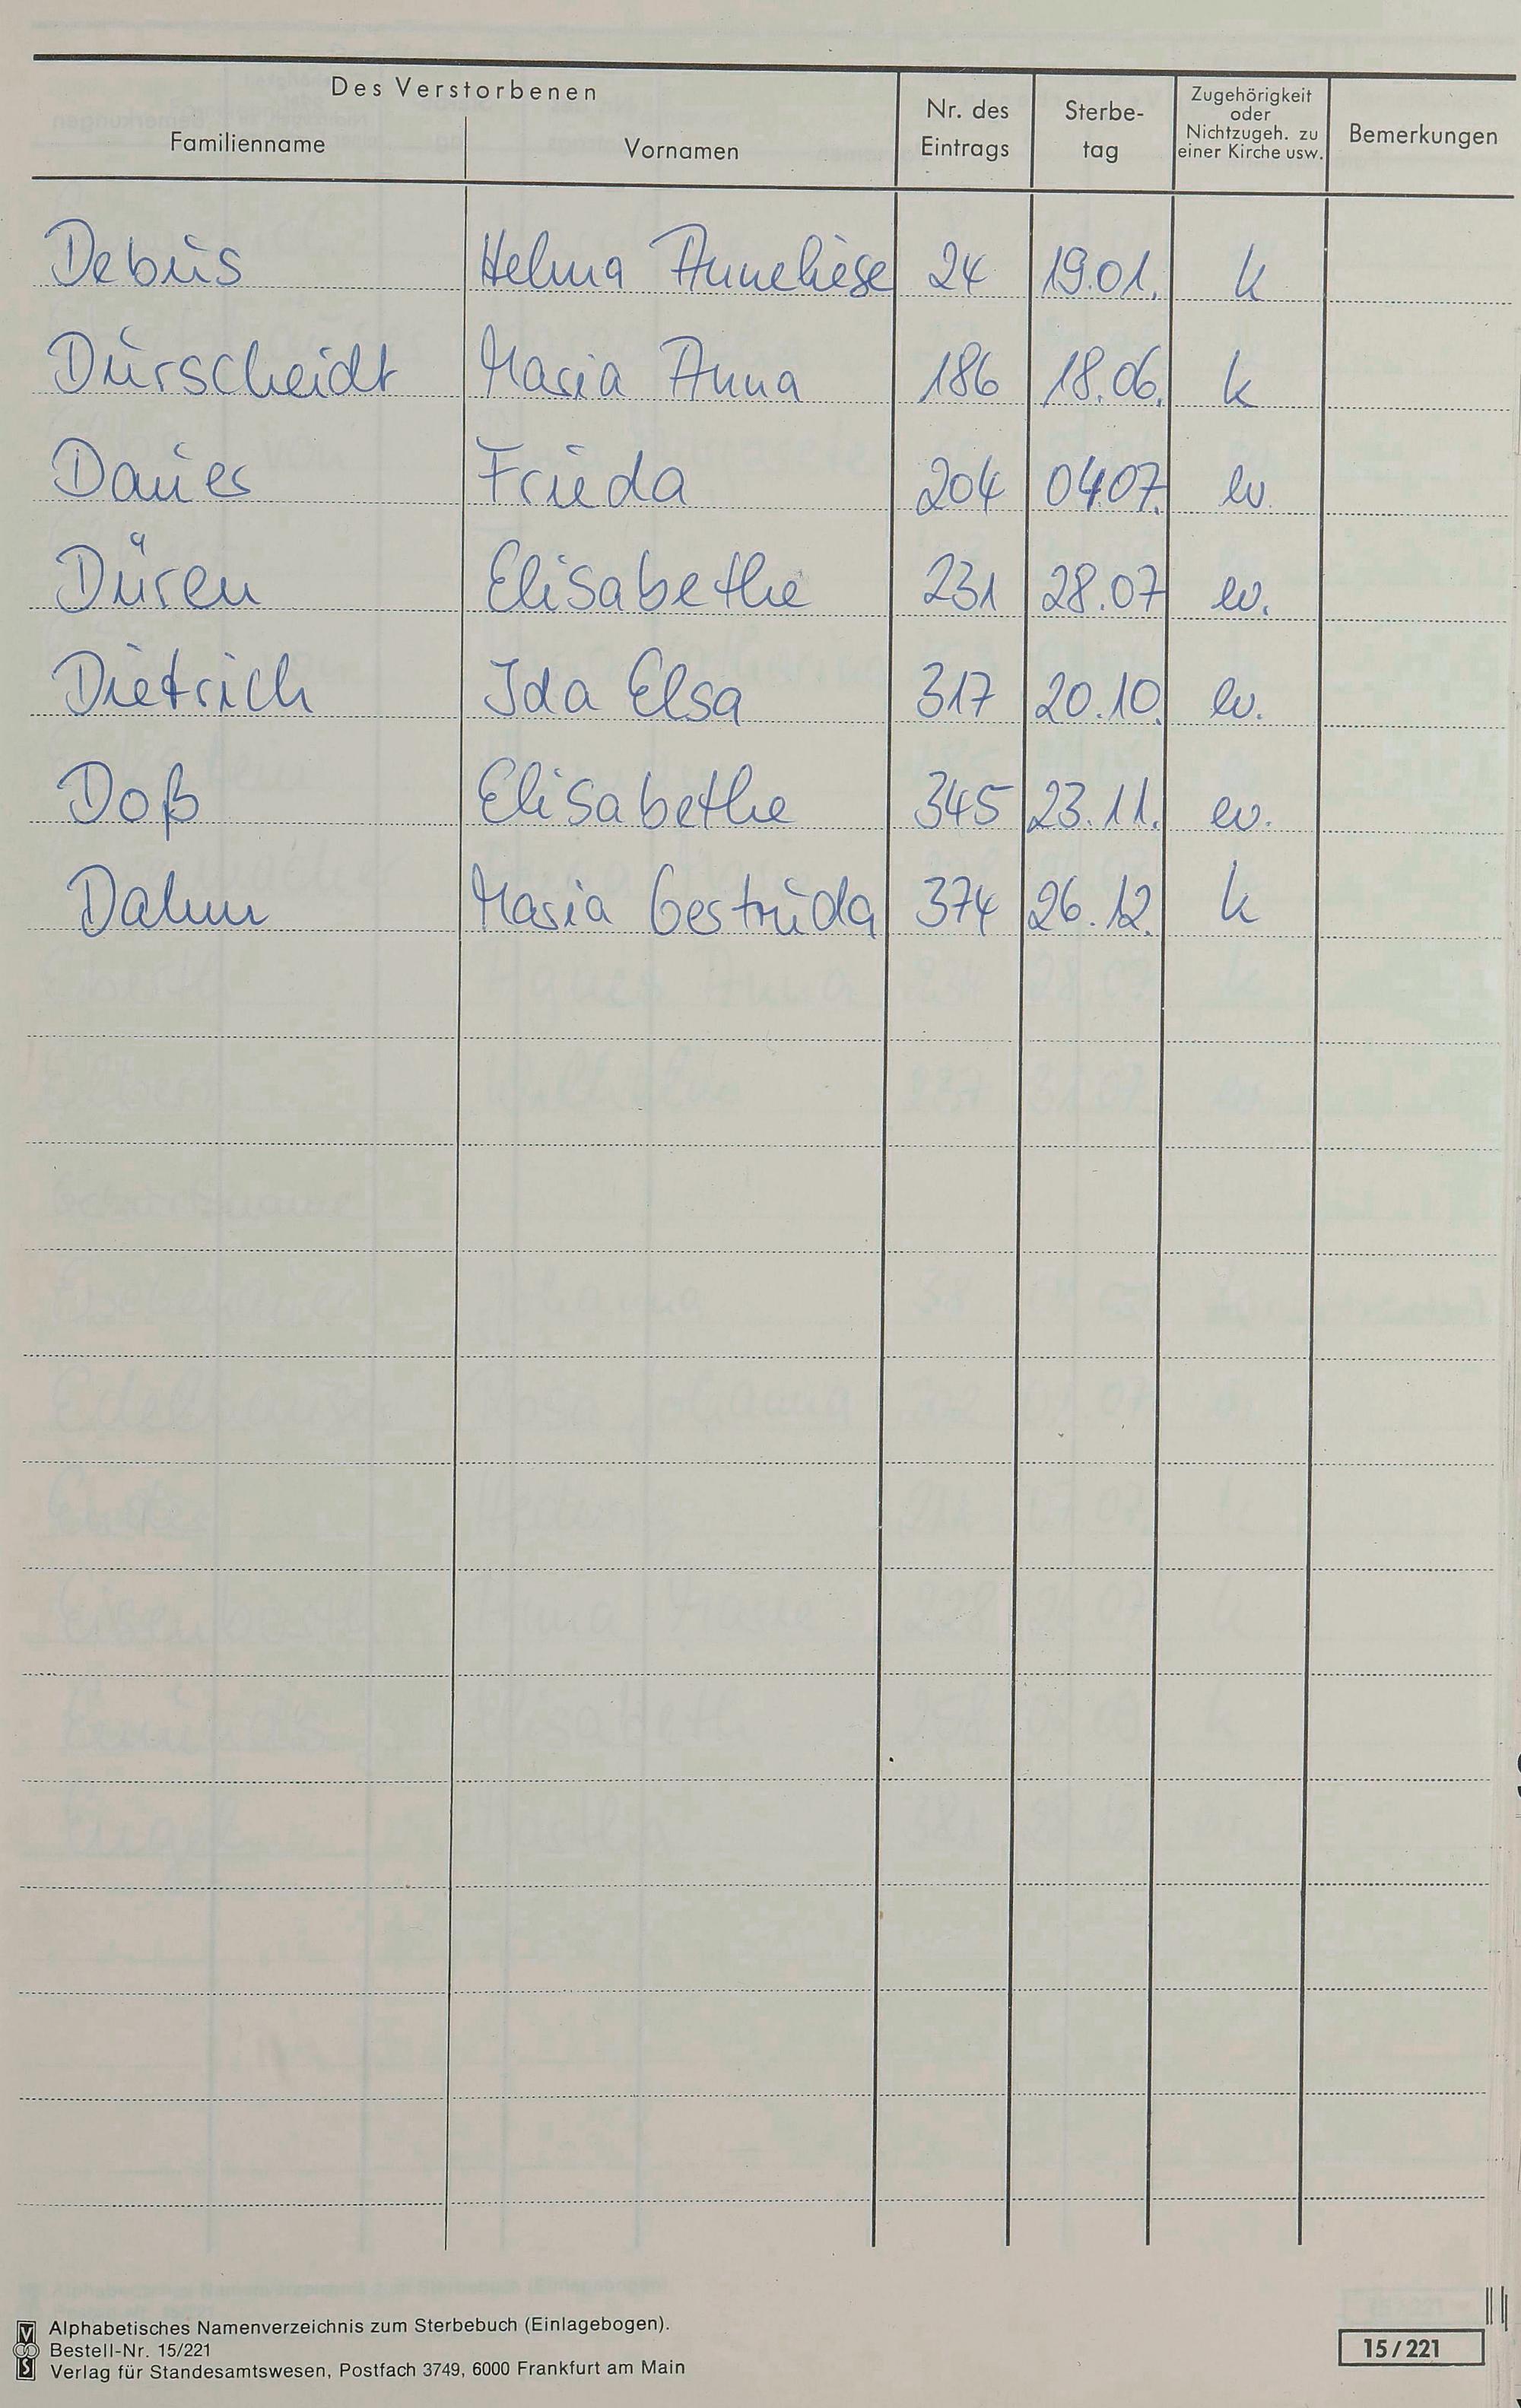 Des Verstorbenen
Familienname Vornamen Nr. des Eintrags Sterbe-tag Zugehörigkeit oder Nichtzugeh. zu einer Kirche usw. Bemerkungen
Debus Helma Anneliese 24 19.01. k
Durscheidt Maria Anna 186 18.06. k
Dauer Frieda 204 04.07. ev.
Düren Elisabethe 231 28.07 ev.
Dietrich Ida Elsa 317 20.10. ev.
Doß Elisabethe 345 23.11. ev.
Dahm Maria Gertruda 374 26.12. k
Alphabetisches Namenverzeichnis zum Sterbebuch (Einlagebogen).
Bestell-Nr. 15/221
Verlag für Standesamtswesen, Postfach 3749, 6000 Frankfurt am Main
15/221